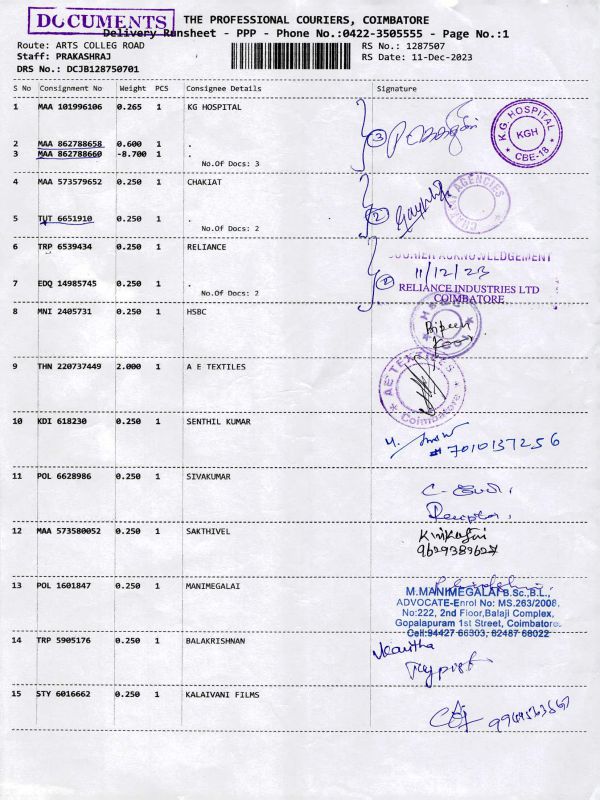 DOCUMENTS
THE PROFESSIONAL COURIERS, COIMBATORE
Delivery Runsheet - PPP - Phone No.:0422-3505555 - Page No.:1
Route: ARTS COLLEG ROAD
RS No.: 1287507
Staff: PRAKASHRAJ
RS Date: 11-Dec-2023
DRS No.: DCJB128750701
S No Consignment No Weight PCS Consignee Details Signature
1 MAA 101996106 0.265 1 KG HOSPITAL
2 MAA 862788658 0.600 1 .
3 MAA 862788660 -8.700 1 .
No.Of Docs: 3
3
K.G. HOSPITAL
KGH
CBE-18
4 MAA 573579652 0.250 1 CHAKIAT
5 TUT 6651910 0.250 1 .
No.Of Docs: 2
2
AGENCIES
6 TRP 6539434 0.250 1 RELIANCE
7 EDQ 14985745 0.250 1 .
No.Of Docs: 2
2
COURIER ACKNOWLEDGEMENT
11/12/23
RELIANCE INDUSTRIES LTD
COIMBATORE
8 MNI 2405731 0.250 1 HSBC
9 THN 220737449 2.000 1 A E TEXTILES
AE TEXTILES
Coimbatore
10 KDI 618230 0.250 1 SENTHIL KUMAR
7010137256
11 POL 6628986 0.250 1 SIVAKUMAR
12 MAA 573580052 0.250 1 SAKTHIVEL
9629389627
13 POL 1601847 0.250 1 MANIMEGALAI
M.MANIMEGALAI B.Sc.,B.L.,
ADVOCATE-Enrol No: MS.263/2008,
No:222, 2nd Floor,Balaji Complex,
Gopalapuram 1st Street, Coimbatore.
Cell:94427 66303, 82487 68022
14 TRP 5905176 0.250 1 BALAKRISHNAN
Typist
15 STY 6016662 0.250 1 KALAIVANI FILMS